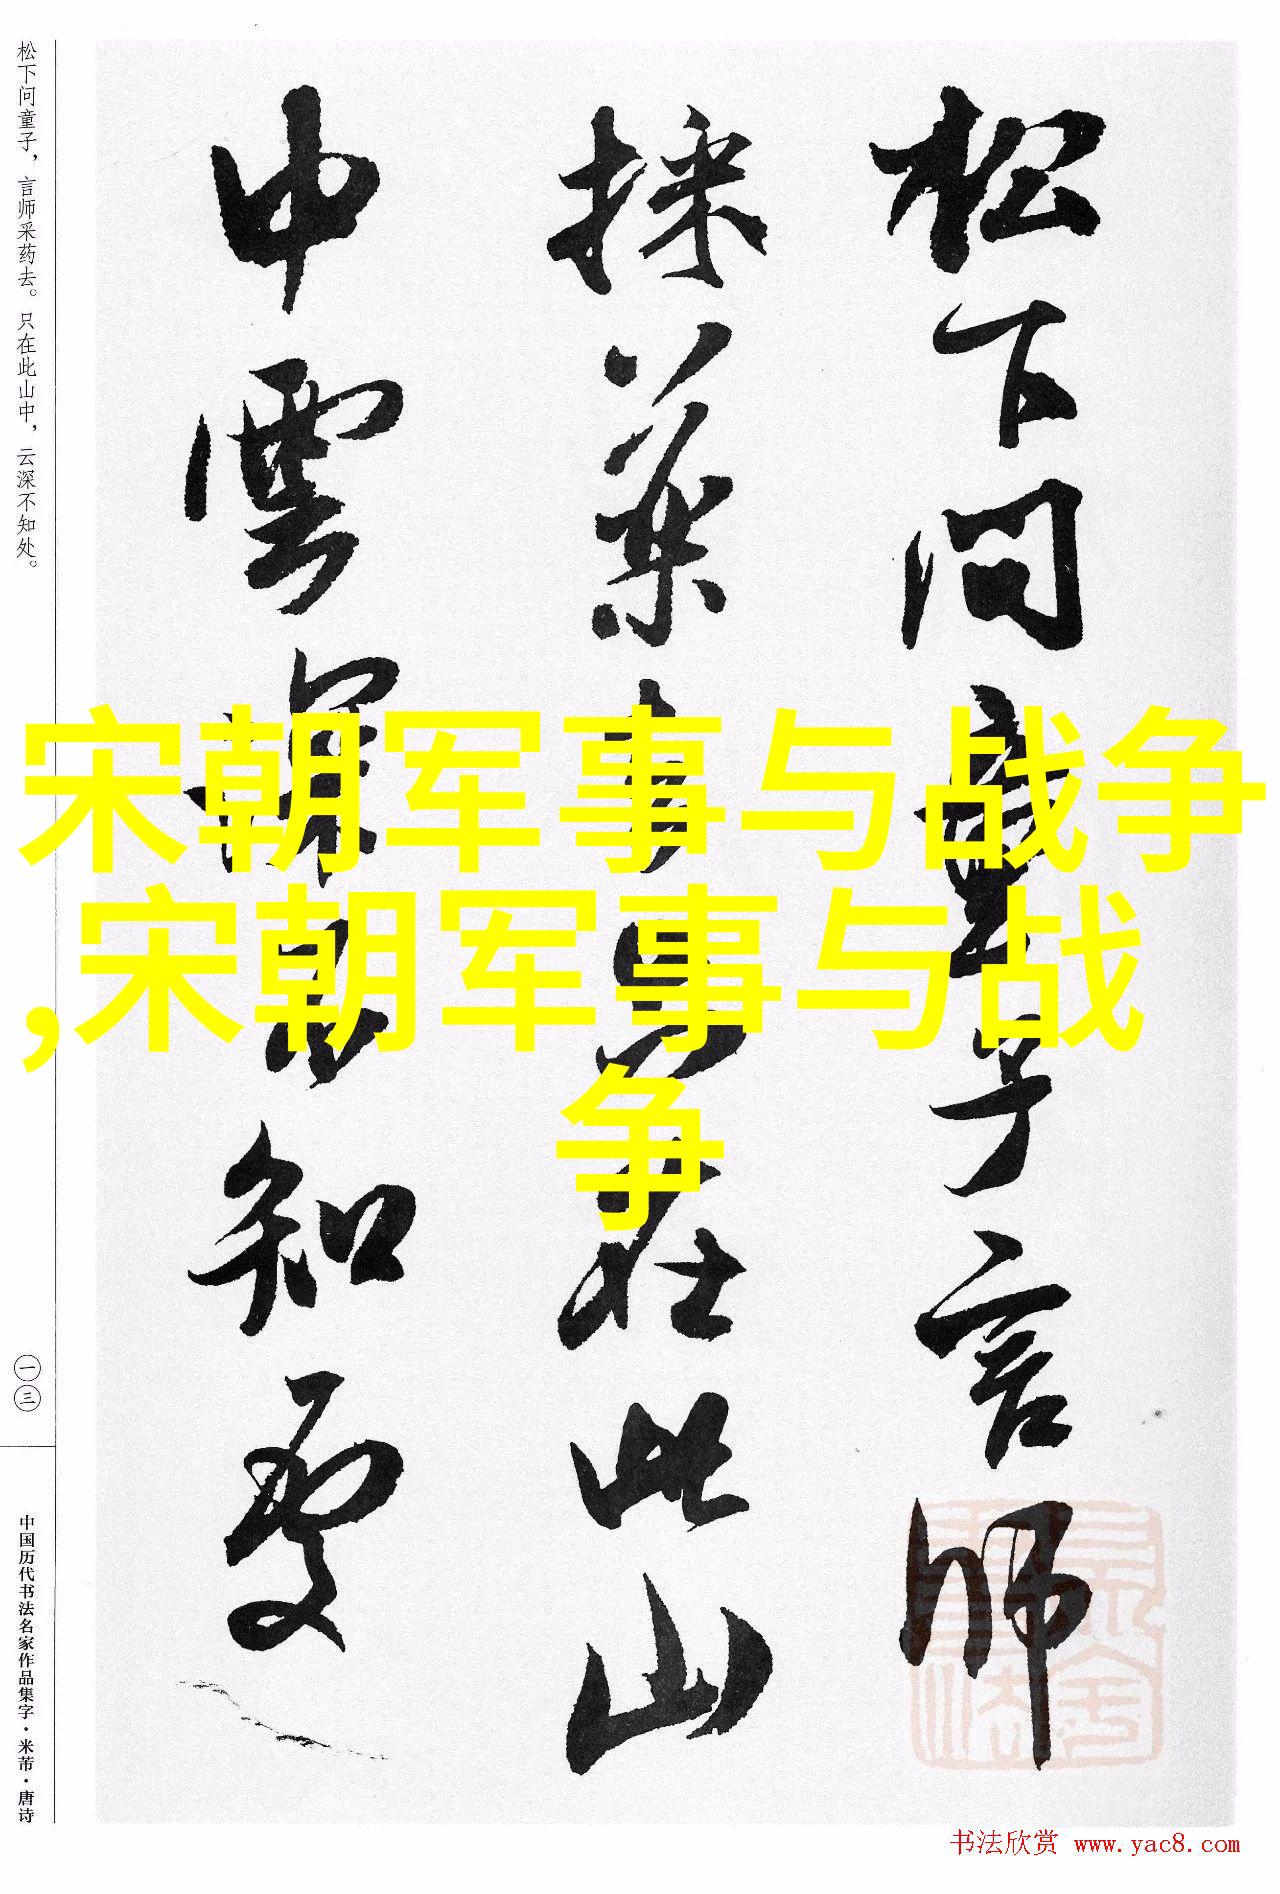 松下问童子，言师采药去。只在此山中，云深不知处。
一三
中国历代书法名家作品集字·米芾·唐诗
松下问童子言师
採药去只在此山
中雲深不知处
宋朝军事与战争
,宋朝军事与战
争
书法欣赏 www.yac8.com